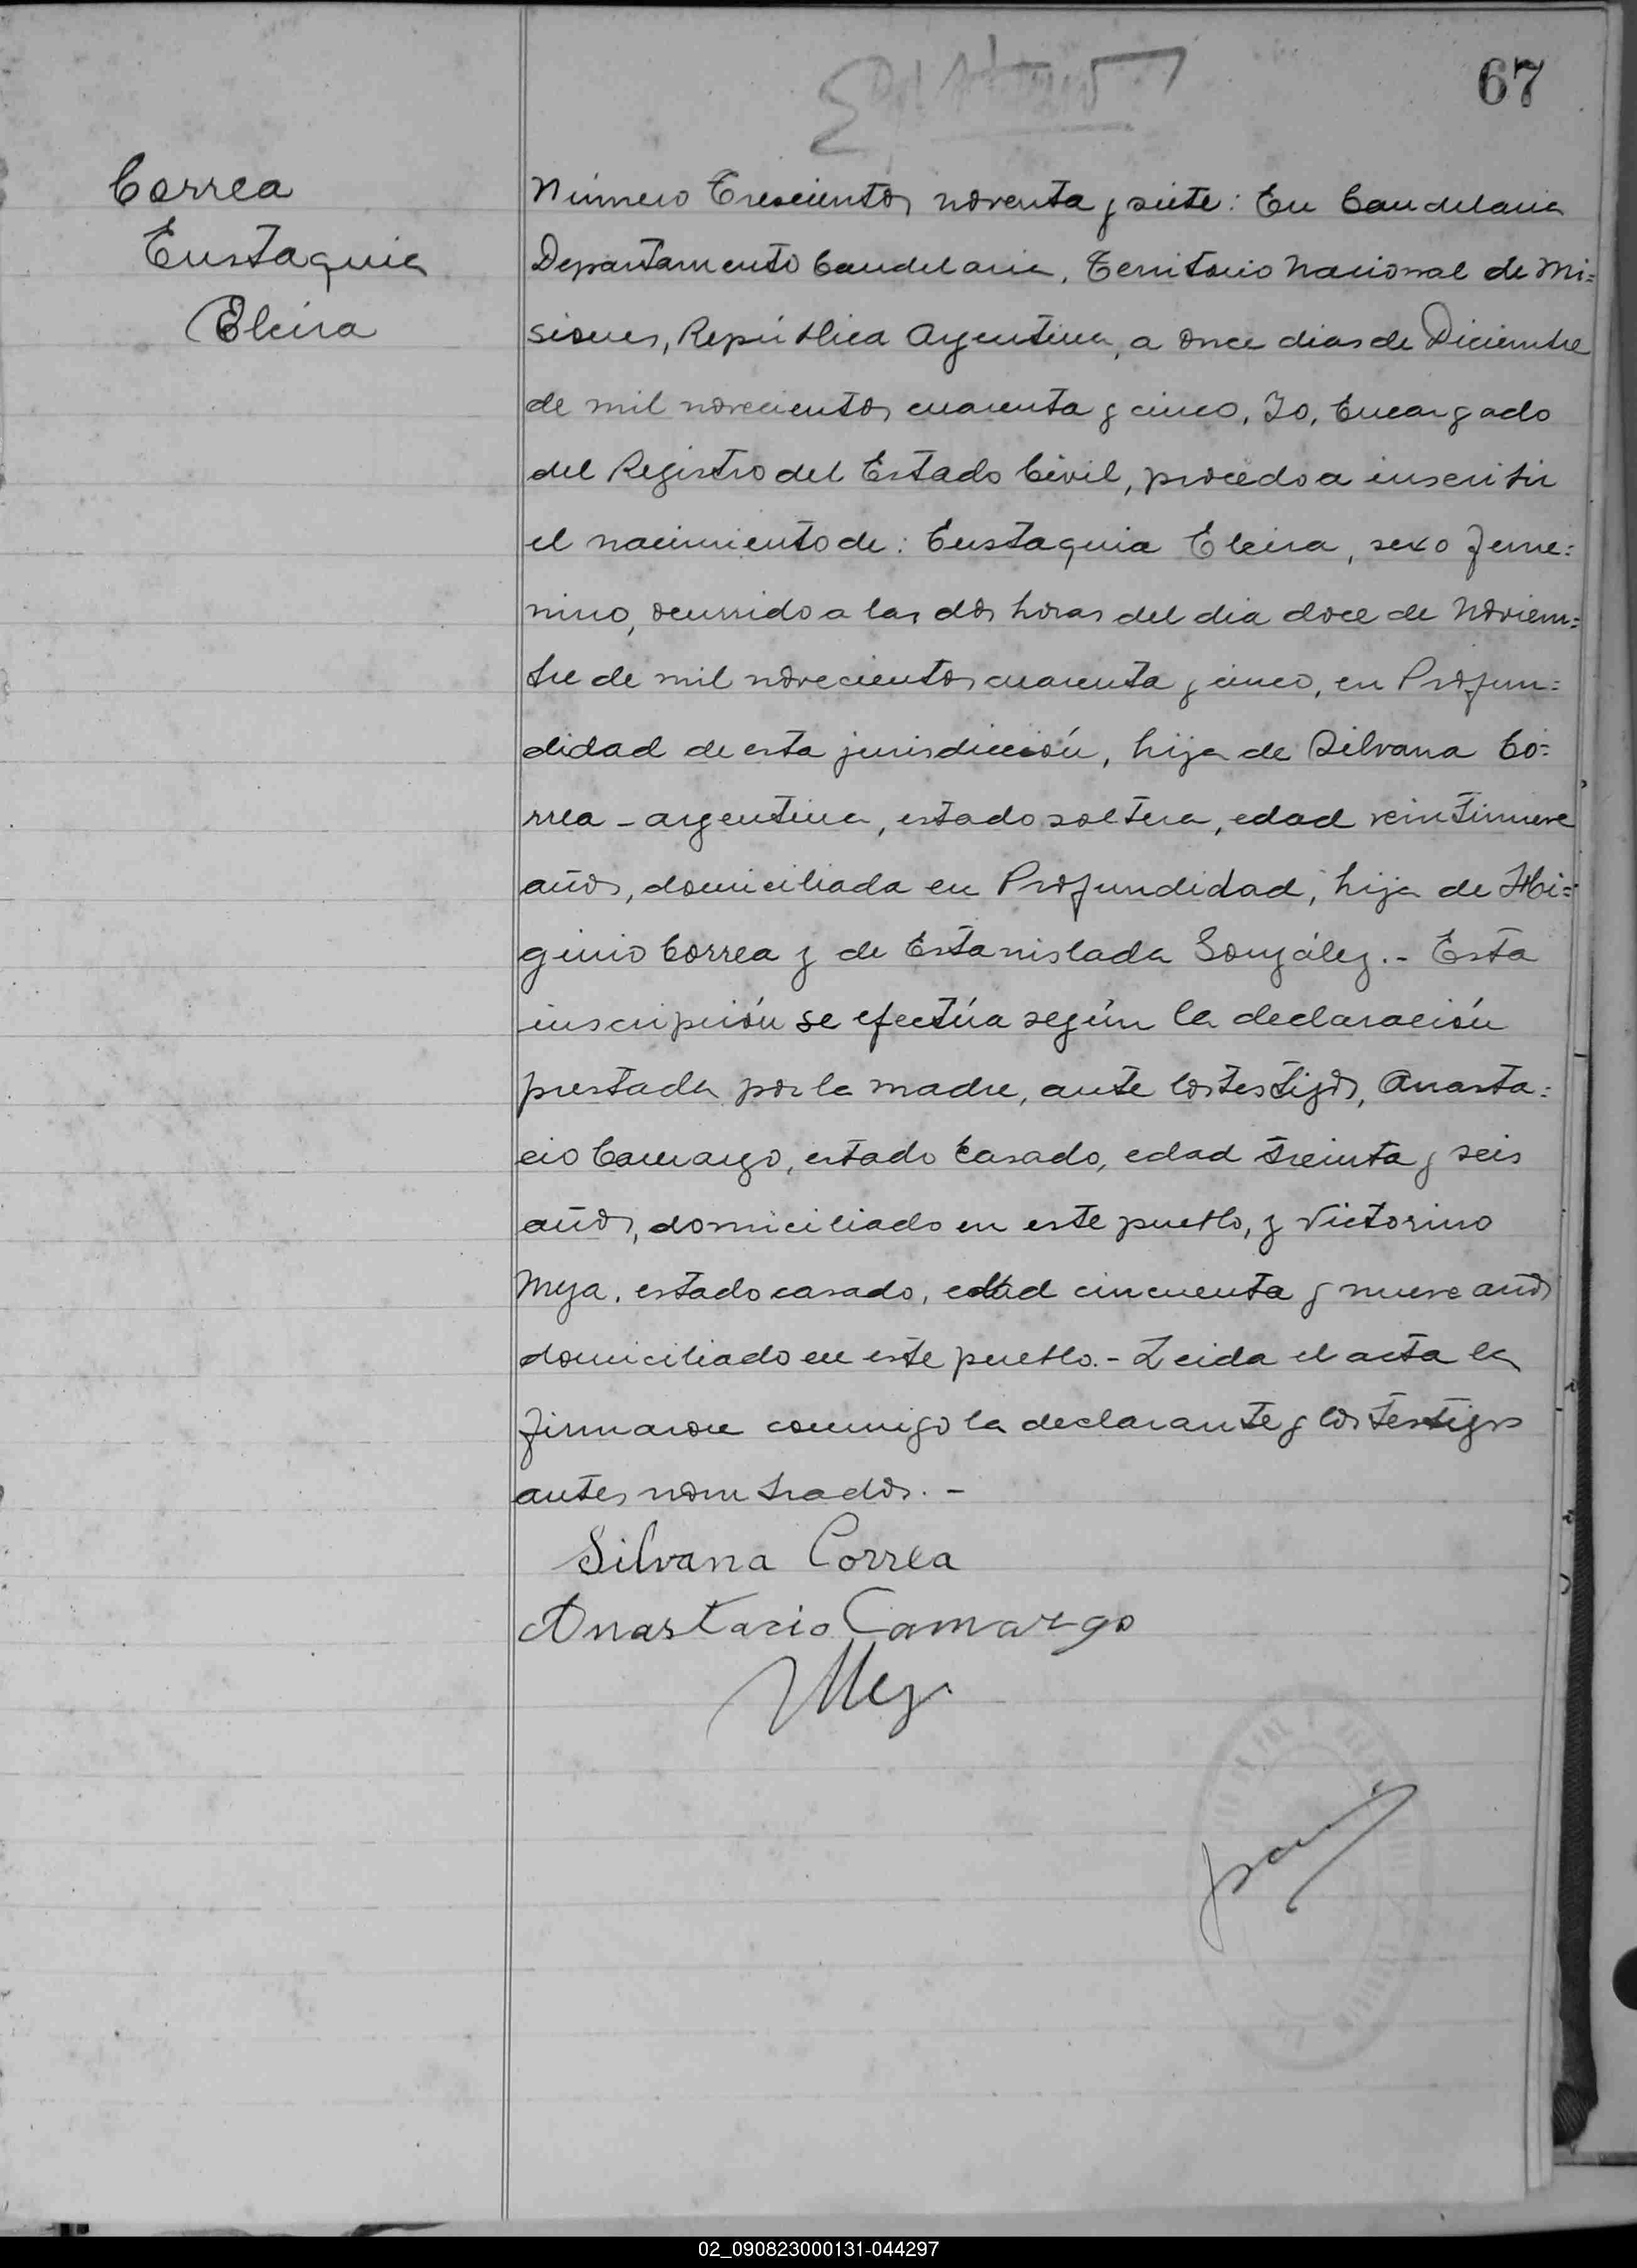 67
Correa
Eustaquia
Elcira
Número Trescientos noventa y siete: En Candelaria
Departamento Candelaria, Territorio Nacional de Mi=
siones, República Argentina, a once dias de Diciembre
de mil novecientos cuarenta y cinco, Yo, Encargado
del Registro del Estado Civil, procedo a inscribir
el nacimiento de: Eustaquia Elcira, sexo feme=
nino, ocurrido a las dos horas del dia doce de Noviem=
bre de mil novecientos cuarenta y cinco, en Profun=
didad de esta jurisdicción, hija de Silvana Co=
rrea - argentina, estado soltera, edad veintinueve
años, domiciliada en Profundidad, hija de Hi=
ginio Correa y de Estanislada González.- Esta
inscripción se efectúa según la declaración
prestada por la madre, ante los testigos, Anasta=
cio Camargo, estado casado, edad treinta y seis
años, domiciliado en este pueblo, y Victorino
Meza, estado casado, edad cincuenta y nueve años
domiciliado en este pueblo.- Leida el acta la
firmaron conmigo la declarante y los testigos
antes nombrados.-
Silvana Correa
Anastacio Camargo
02_090823000131-044297